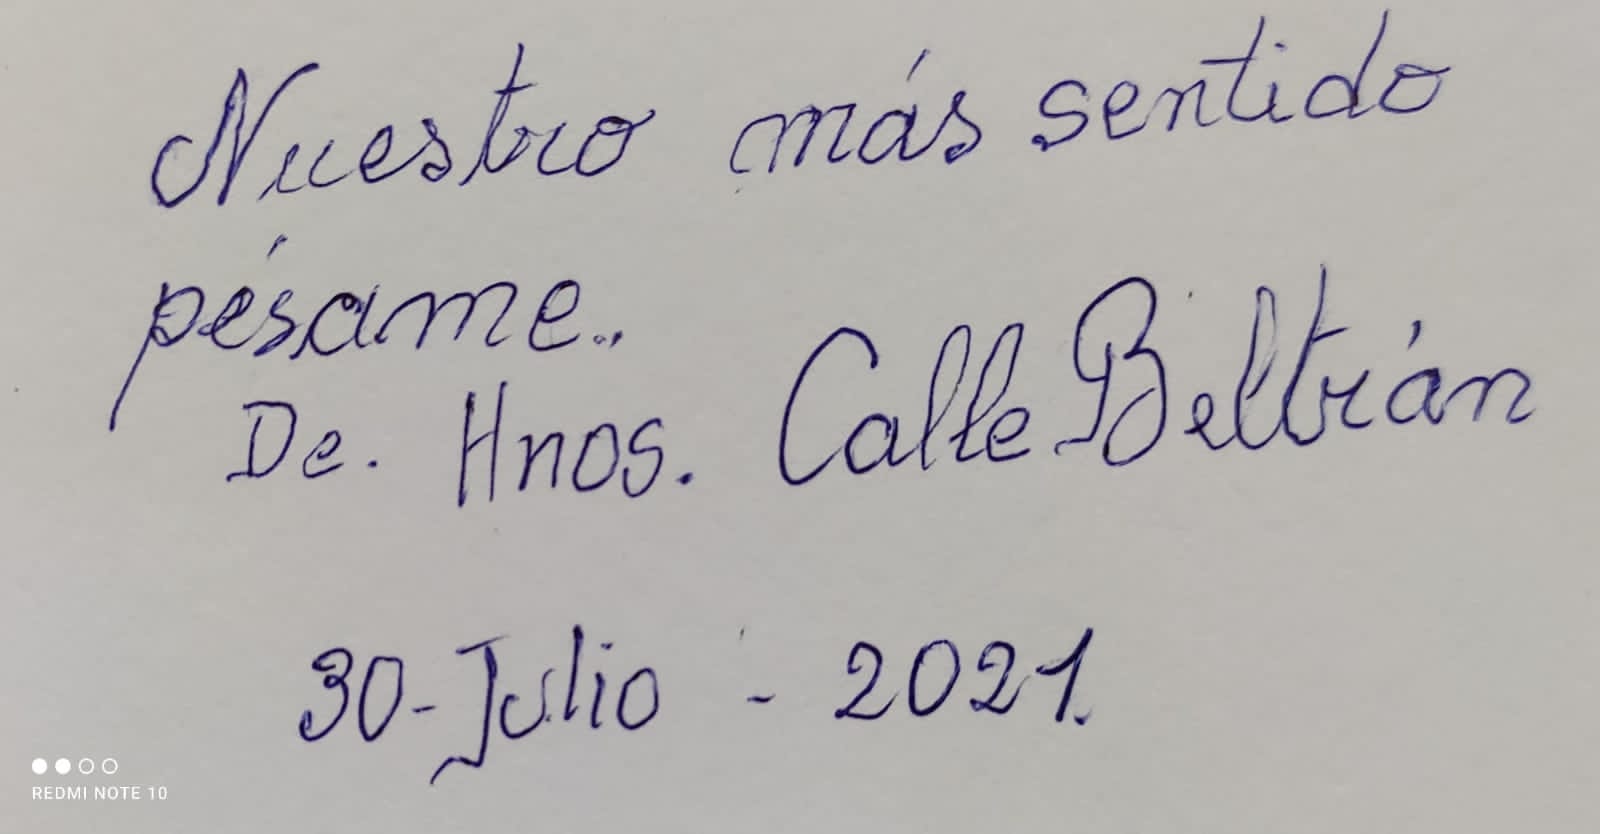 Nuestro más sentido
pésame..
De. Hnos. Calle Beltrán
30-Julio - 2021.
REDMI NOTE 10